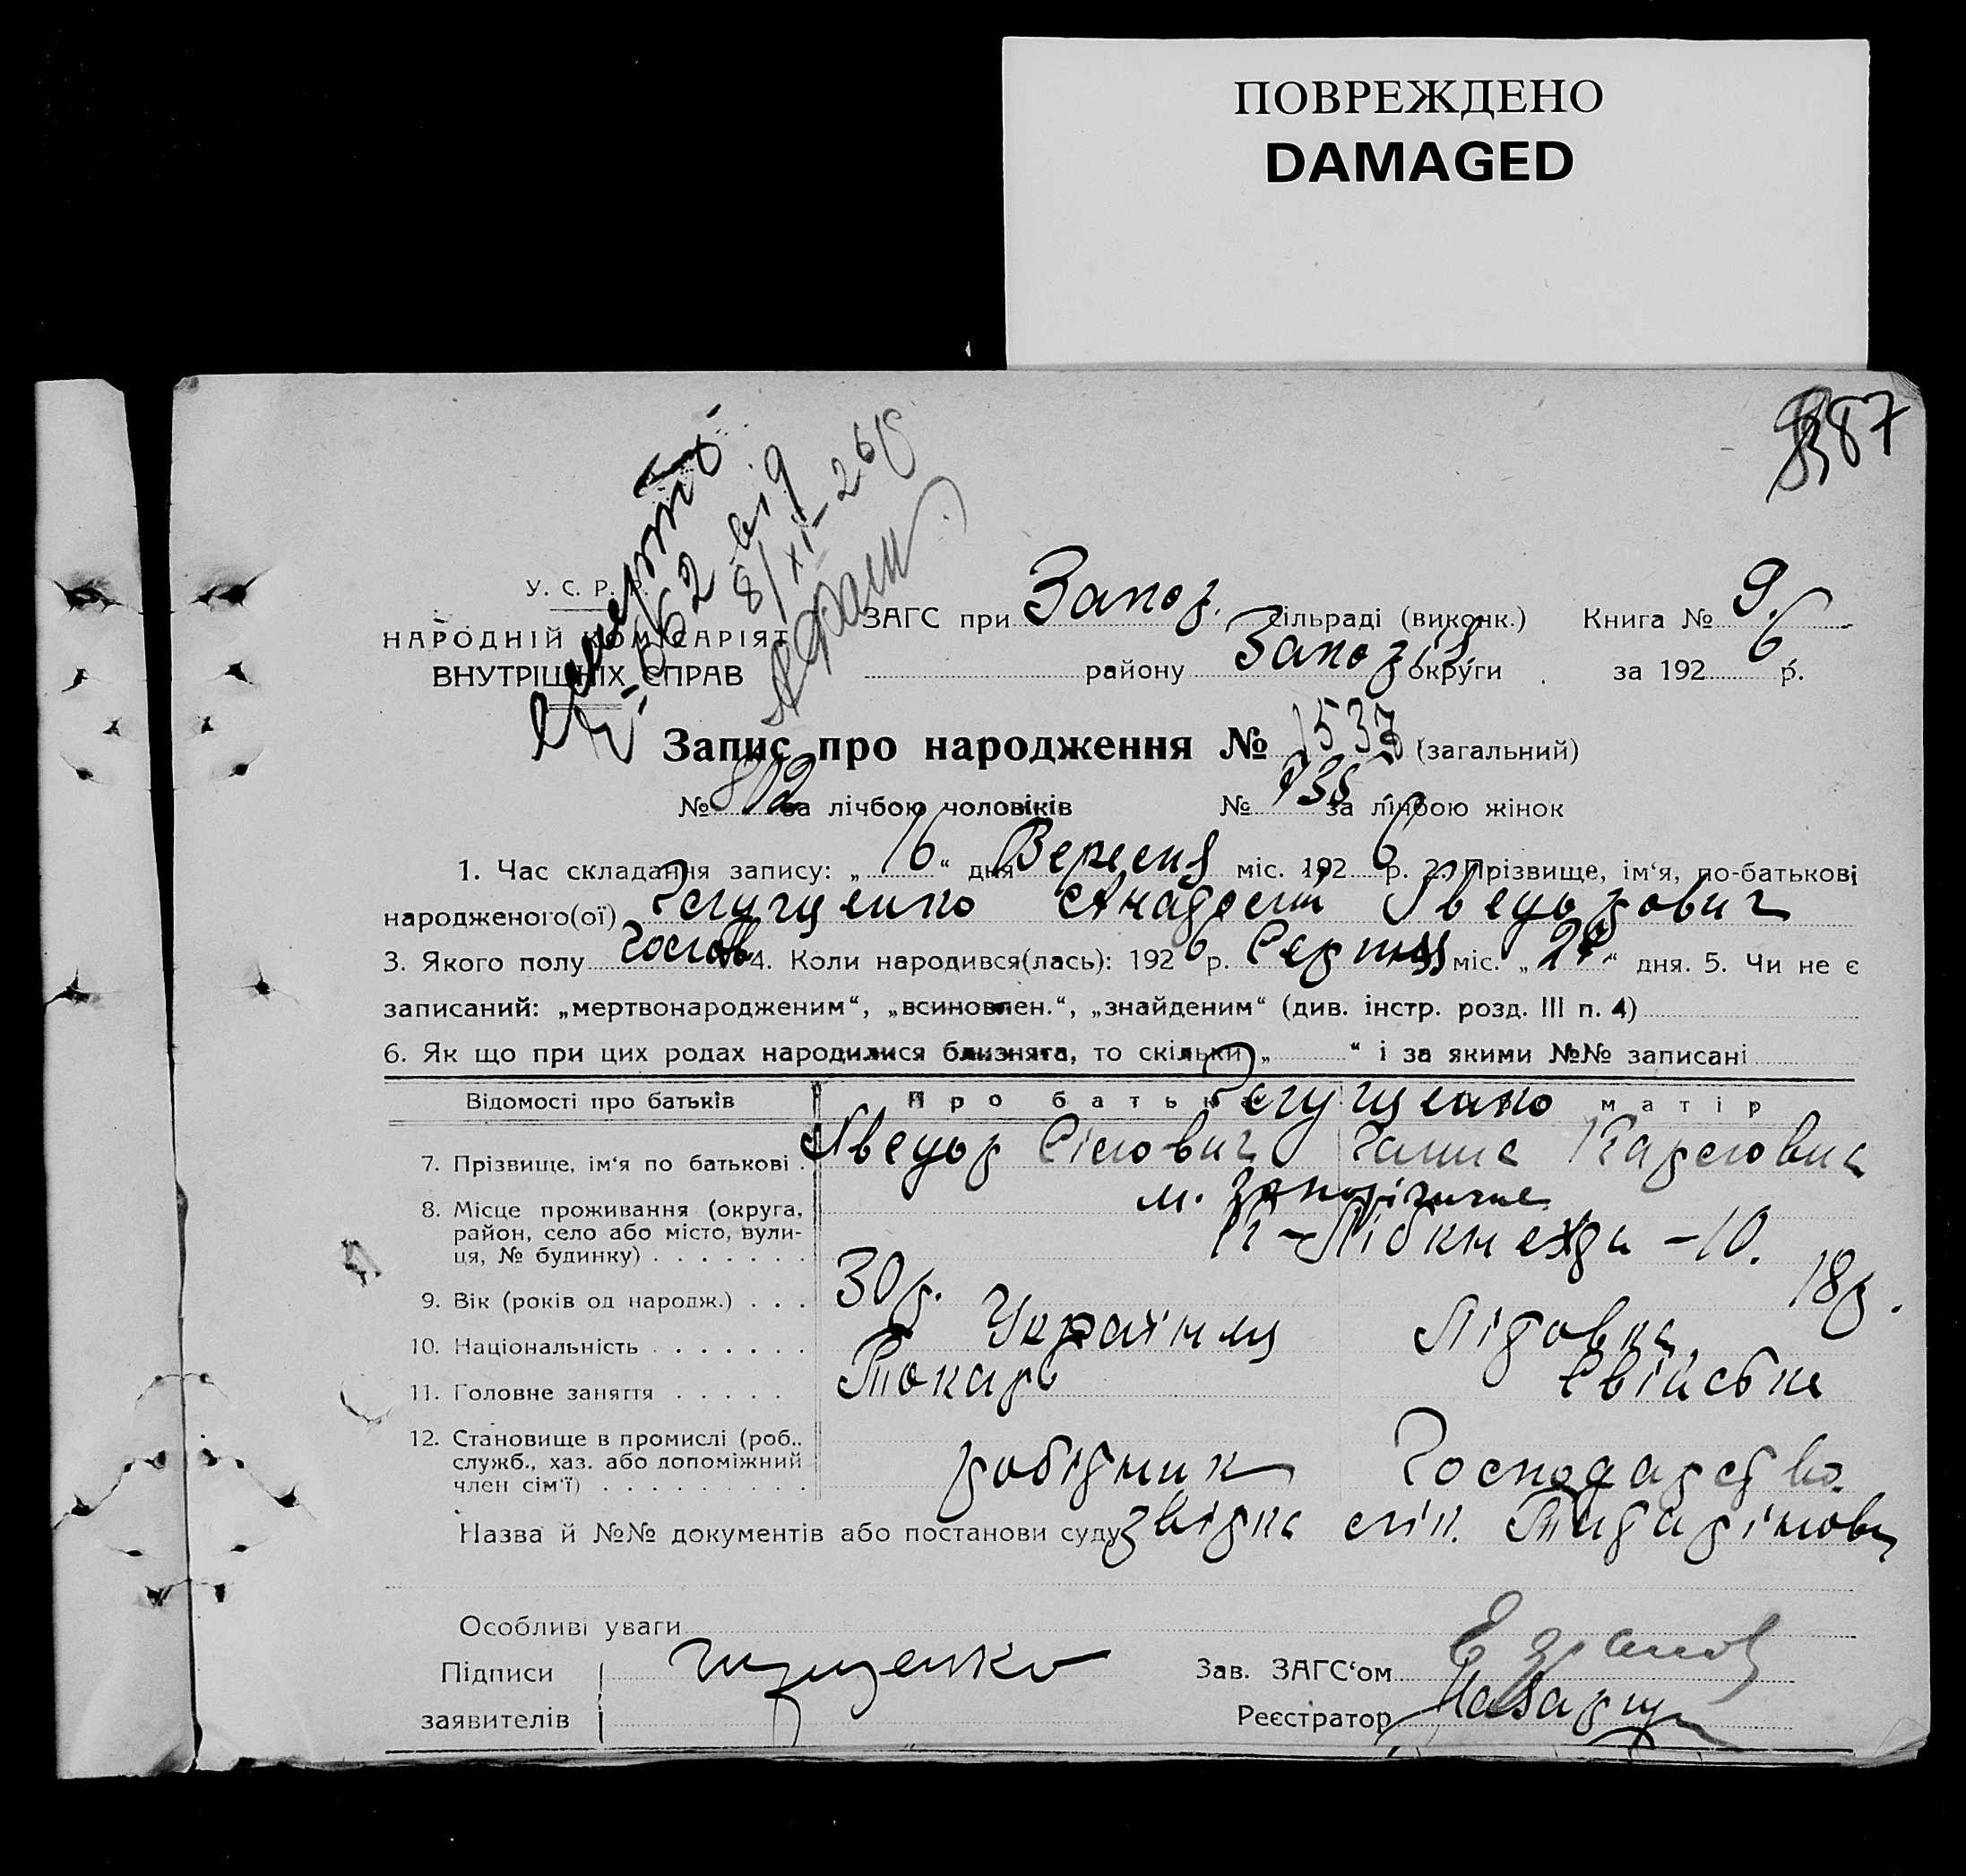 ПОВРЕЖДЕНО
DAMAGED
387
У. С. Р. Р.
НАРОДНІЙ КОМІСАРІЯТ
ВНУТРІШНІХ СПРАВ
від
8/XI-26р
ЗАГС при Запор. сільраді (виконк.) Книга № 9.
району Запоріз округи за 1926 р.
Запис про народження № 1537 (загальний)
№ 802 за лічбою чоловіків № 735 за лічбою жінок
1. Час складання запису: „16“ дня Вересня міс. 1926 р. 2. Прізвище, ім‘я, по-батькові
народженого(ої)
3. Якого полу Чолов 4. Коли народився(лась): 1926 р. Серпня міс. „24“ дня. 5. Чи не є
записаний: „мертвонародженим“, „всиновлен.“, „знайденим“ (див. інстр. розд. III п. 4)
6. Як що при цих родах народилися близнята, то скільки „ “ і за якими №№ записані
Відомості про батьків Про батька матір
7. Прізвище, ім‘я по батькові
м. Запоріжжє
8. Місце проживання (округа,
район, село або місто, вули-
ця, № будинку) К-Лібкнехда -10.
9. Вік (років од народж.) 30р. 18р.
10. Національність Українец Літовка
11. Головне заняття Токарь Свійське
12. Становище в промислі (роб.,
служб., хаз. або допоміжний
член сім‘ї) робітник Господарство.
Назва й №№ документів або постанови суду звідка
Особливі уваги
Підписи
заявителів
Зав. ЗАГС‘ом
Реєстратор